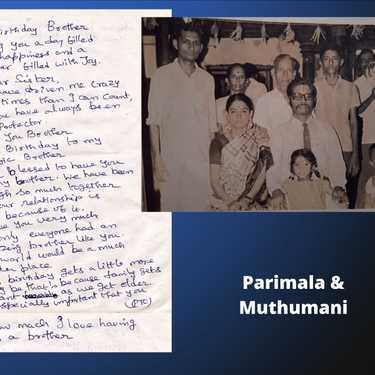 irthday Brother
g you a day filled
happiness and a
filled with Joy.
Sister,
ave driven me crazy
times than I can count,
have always been
Protector.
You Brother
Birthday to my
Brother
blessed to have you
brother. We have been
so much together
our relationship is
because of it.
you very much
only everyone had an
brother like you.
world would be a much
place
birthday gets a little more
be that's because family gets
as we get older
especially important that you
(PTO)
ow much I love having
s a brother
Parimala &
Muthumani